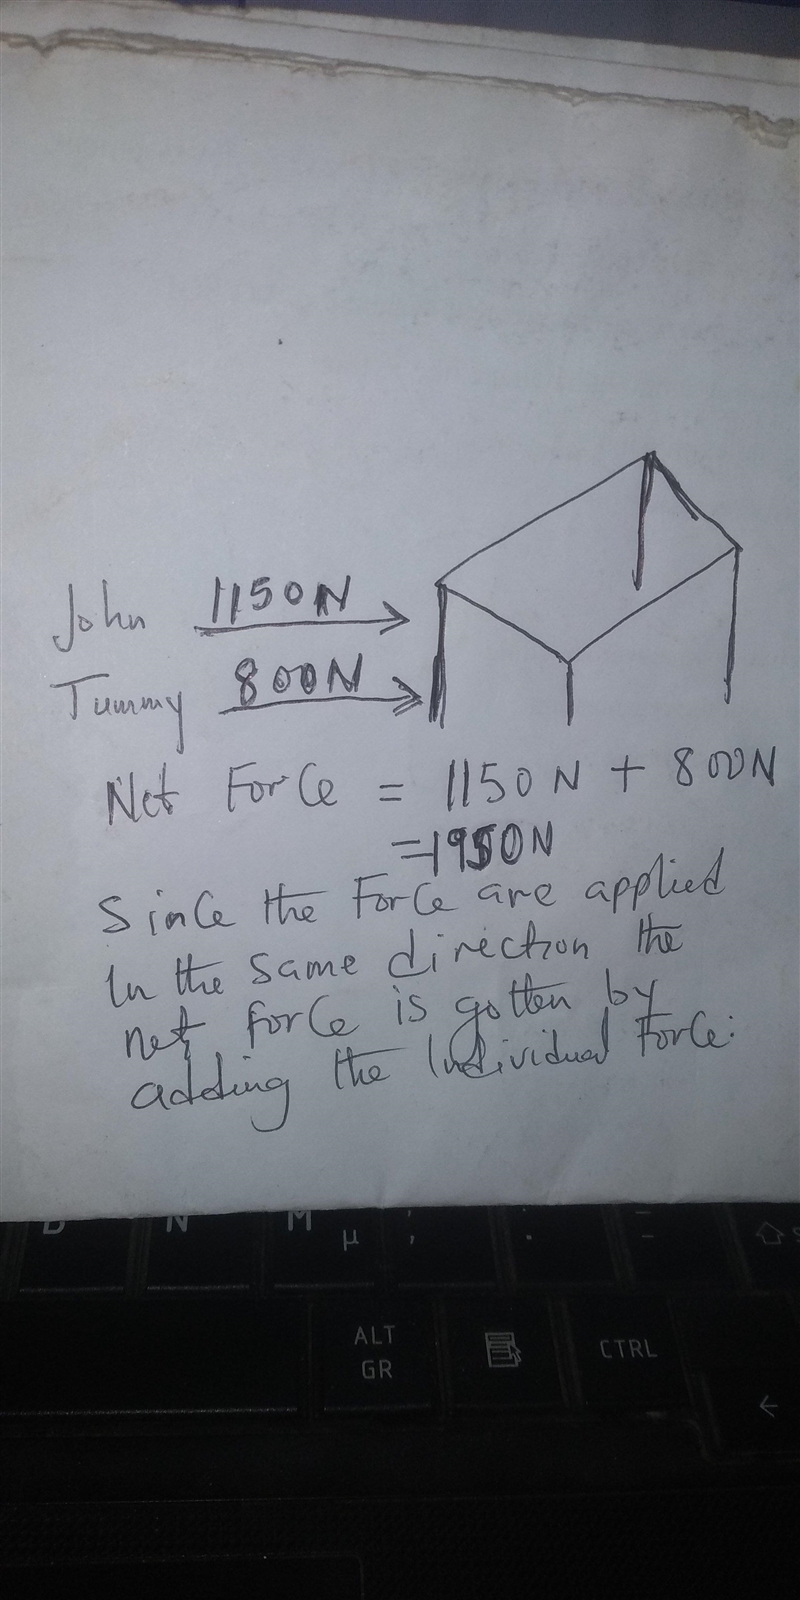 John 1150N
Tummy 800N
Net Force = 1150N + 800N
=1950N
Since the Force are applied
In the same direction the
net force is gotten by
adding the Individual Force.
D N M µ ; : . _ - ⇧ S
ALT
GR
CTRL
←